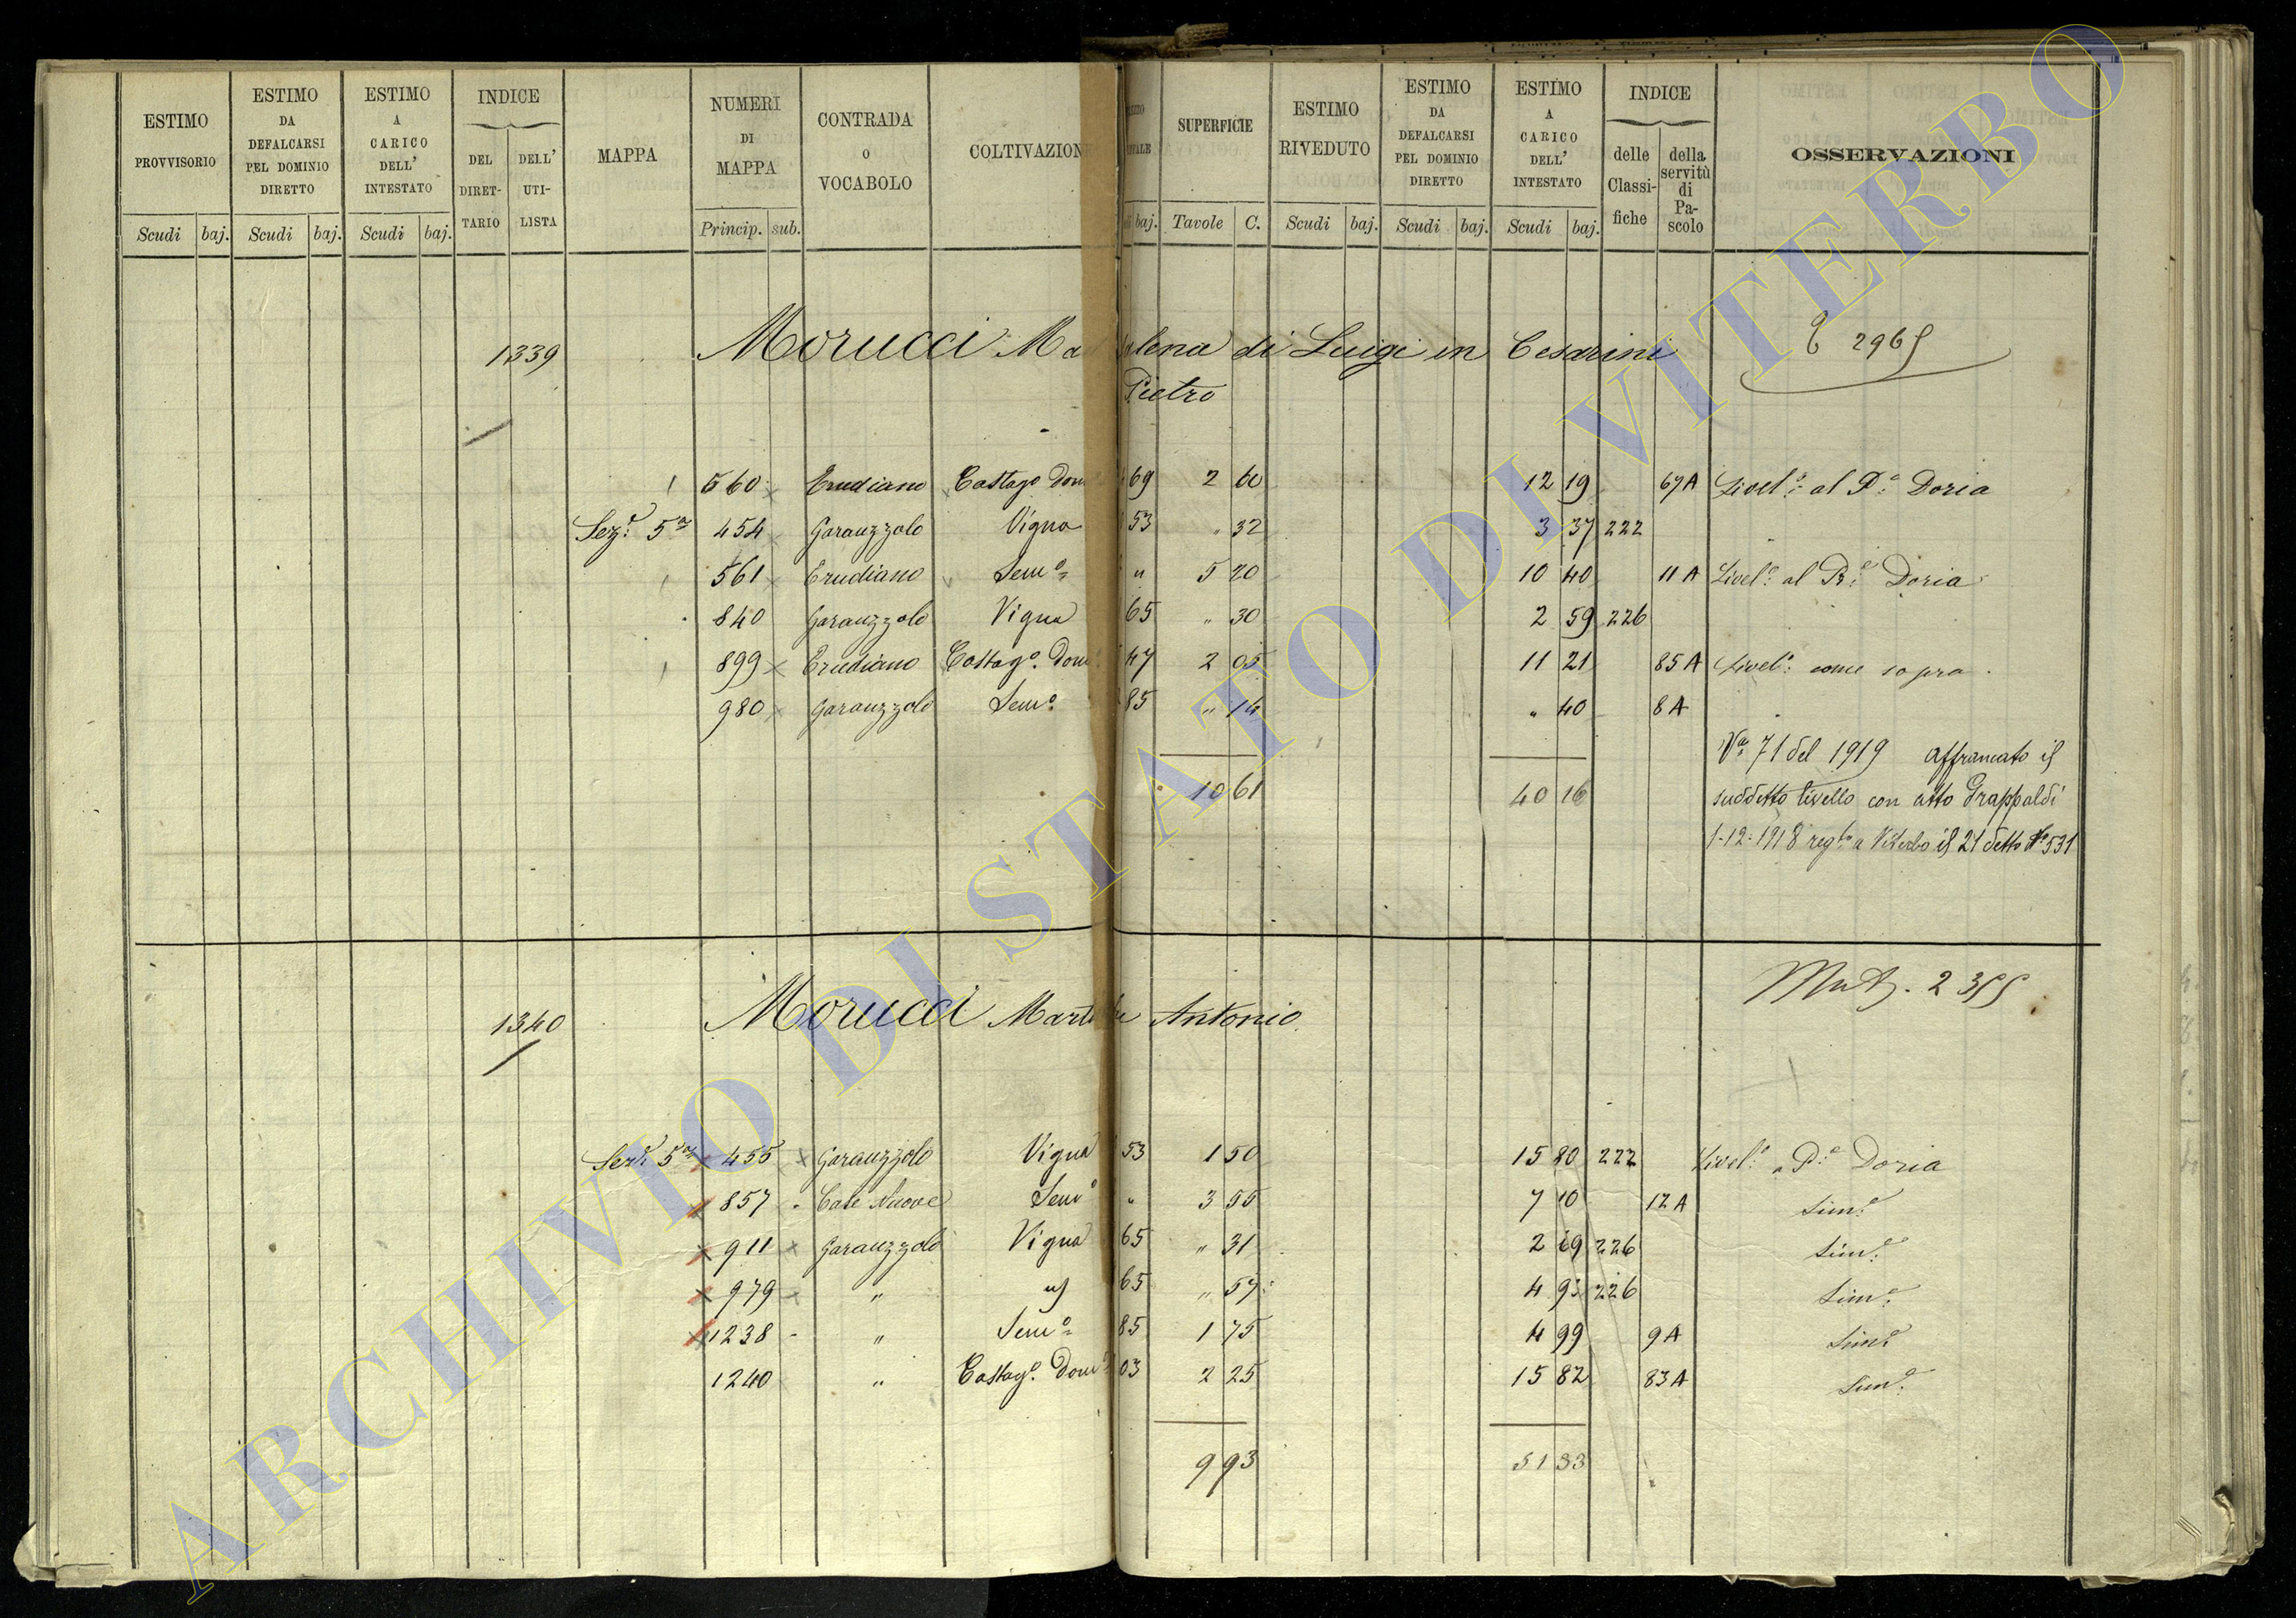 ESTIMO PROVVISORIO Scudi baj.
ESTIMO DA DEFALCARSI PEL DOMINIO DIRETTO Scudi baj.
ESTIMO A CARICO DELL' INTESTATO Scudi baj.
INDICE DEL DIRET-TARIO DELL' UTI-LISTA
MAPPA
NUMERI DI MAPPA Princip. sub.
CONTRADA O VOCABOLO
COLTIVAZION
baj.
SUPERFICIE Tavole C.
ESTIMO RIVEDUTO Scudi baj.
ESTIMO DA DEFALCARSI PEL DOMINIO DIRETTO Scudi baj.
ESTIMO A CARICO DELL' INTESTATO Scudi baj.
INDICE delle Classi-fiche della servitù di Pa-scolo
OSSERVAZIONI
1339 Morucci Ma alena di Luigi in Cesarini 2965
Pietro
560 Erudiano Castago Dom 69 2 60 12 19 69A Livelo: al Pe: Doria
Seze 5a 454 Garauzzolo Vigna 53 " 32 3 37 222
561 Erudiano Semo " 5 20 10 40 11 A Livelo: al Pe: Doria
840 Garauzzolo Vigna 65 " 30 2 59 226
899 Erudiano Castago. Dom 47 2 05 11 21 85A Livelo: come sopra.
980 Garauzzolo Semo 85 " 14 " 40 8A
Va 71 del 1919 affrancato il
10 61 40 16 suddetto livello con atto Grappaldi
1-12-1918 regto a Viterbo il 21 detto No 531
1340 Morucci Mart Antonio Mut. 2355
Seze 5a 455 Garauzzolo Vigna 53 1 50 15 80 222 Livelo a Pe Doria
857 Case Nuove Semo " 3 55 7 10 12A Simo:
911 Garauzzolo Vigna 65 " 31 2 69 226 Simo:
979 " " 65 " 57 4 93 226 Simo:
1238 " Semo 85 1 75 4 99 9A Simo
1240 " Castago. Dom 03 2 25 15 82 83A Simo:
9 93 51 33
ARCHIVIO DI STATO DI VITERBO